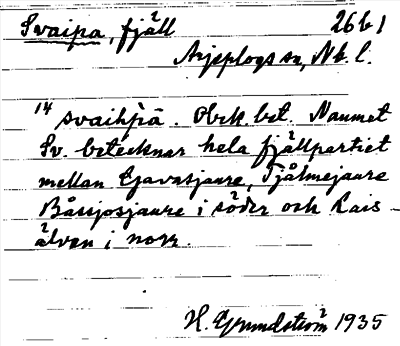 Svaipa, fjäll 26b1
Arjeplogs sn, Nb. l.
14 svaihpà. Obek. bet. Namnet
Sv. betecknar hela fjällpartiet
mellan Gavasjaure, Tjålmejaure
Båssjosjaure i söder och Lais-
älven i norr.
H. Grundström 1935